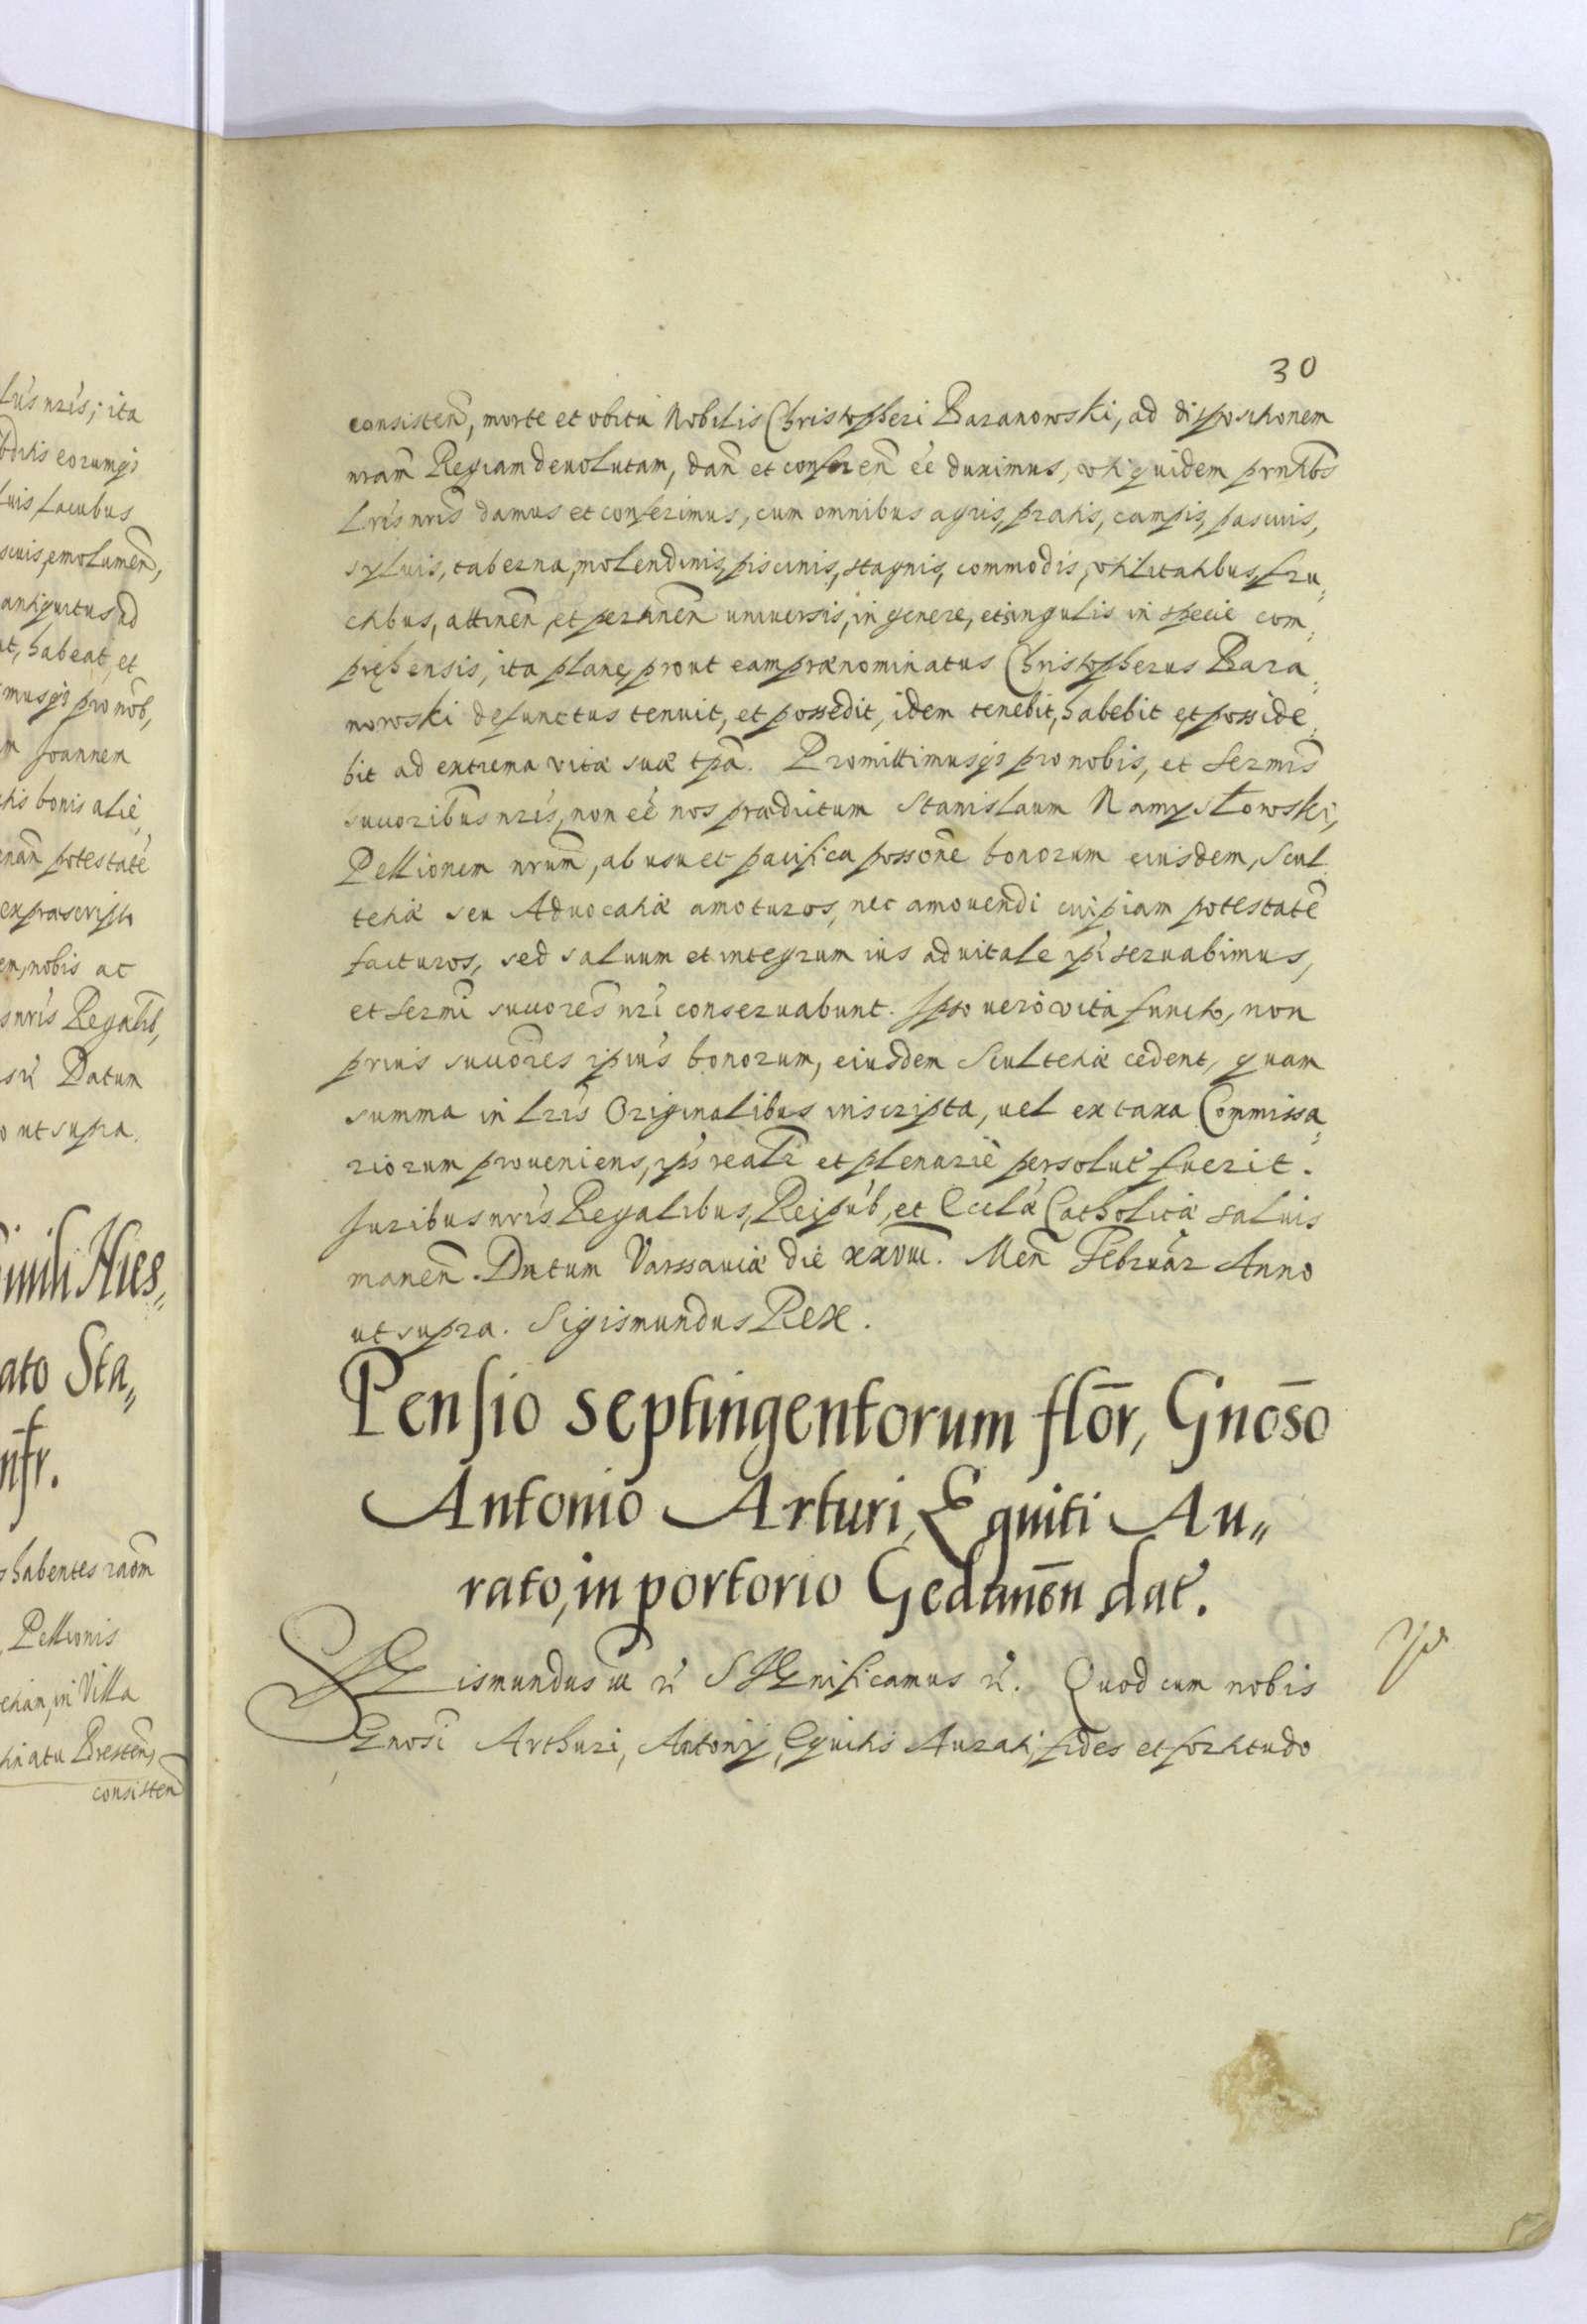 lris nris; ita
oditis eorumqs
luis lacubus
scuis, emolumen̄,
antiquitus ad
at, habeat, et
imusqs pro nob,
m Joannem
ctis bonis alie,
enan̄ potestatē
ex præscripto
en, nobis ac
s nris Regalib,
sr̃ Datum
o ut supra.
imili Hies„
ato Sta„
nfr.
s habentes raōm
Pellionis
etiam, in Villa
tinatu Bresten̄,
consisten̄
30
consisten̄, morte et obitu Nobilis Christopheri Baranowski, ad dispositionem
nram̄ Regiam deuolutam, dan̄ et conferen̄ eē duximus, vti quidem prntibs̄
Lris nris̄ damus et conferimus, cum omnibus agris, pratis, campis, pascuis,
syluis, taberna, molendinis, piscinis, stagnis, commodis, vtilitatibus, fru„
ctibus, attinen̄, et pertinen̄ uniuersis, in genere, et singulis in specie com„
pręhensis, ita plane, prout eam prænominatus Christopherus Bara„
nowski defunctus tenuit, et possedit, idem tenebit, habebit et posside„
bit ad extrema vitæ suæ tpā. Promittimusqs pro nobis, et Sermis̄
succoribus̄ nris, non eē nos prædictum Stanislaum Namysłowski,
Pellionem nrum̄, ab usu et pacifica possōne bonorum eiusdem, Scul„
tetiæ seu Aduocatiæ amoturos, nec amouendi cuipiam potestatē
facturos, sed saluum et integrum ius aduitale ipi seruabimus,
et Sermī succores̄ nri conseruabunt. Ipso uero vita functo, non
prius succōres ipius bonorum, eiusdem Scultetiæ cedent, quam
summa in Lris Originalibus inscripta, uel ex taxa Commissa„
riorum proueniens, ips realr̄ et plenariè persolut' fuerit.
Juribus nris Regalibus, Reipub, et Ecclæ Catholicæ saluis
manen̄. Datum Varssauiæ die xxviii. Men̄ Februar̄ Anno
ut supra. Sigismundus Rex.
Pensio septingentorum flōr, Gnōso
Antonio Arturi, Equiti Au„
rato, in portorio Gedanēn dat'.
SIGismundus iii r̃ SIGnificamus r̃. Quod cum nobis
Gnosi Arthuri, Antonÿ, Equitis Aurati, fides et fortitudo